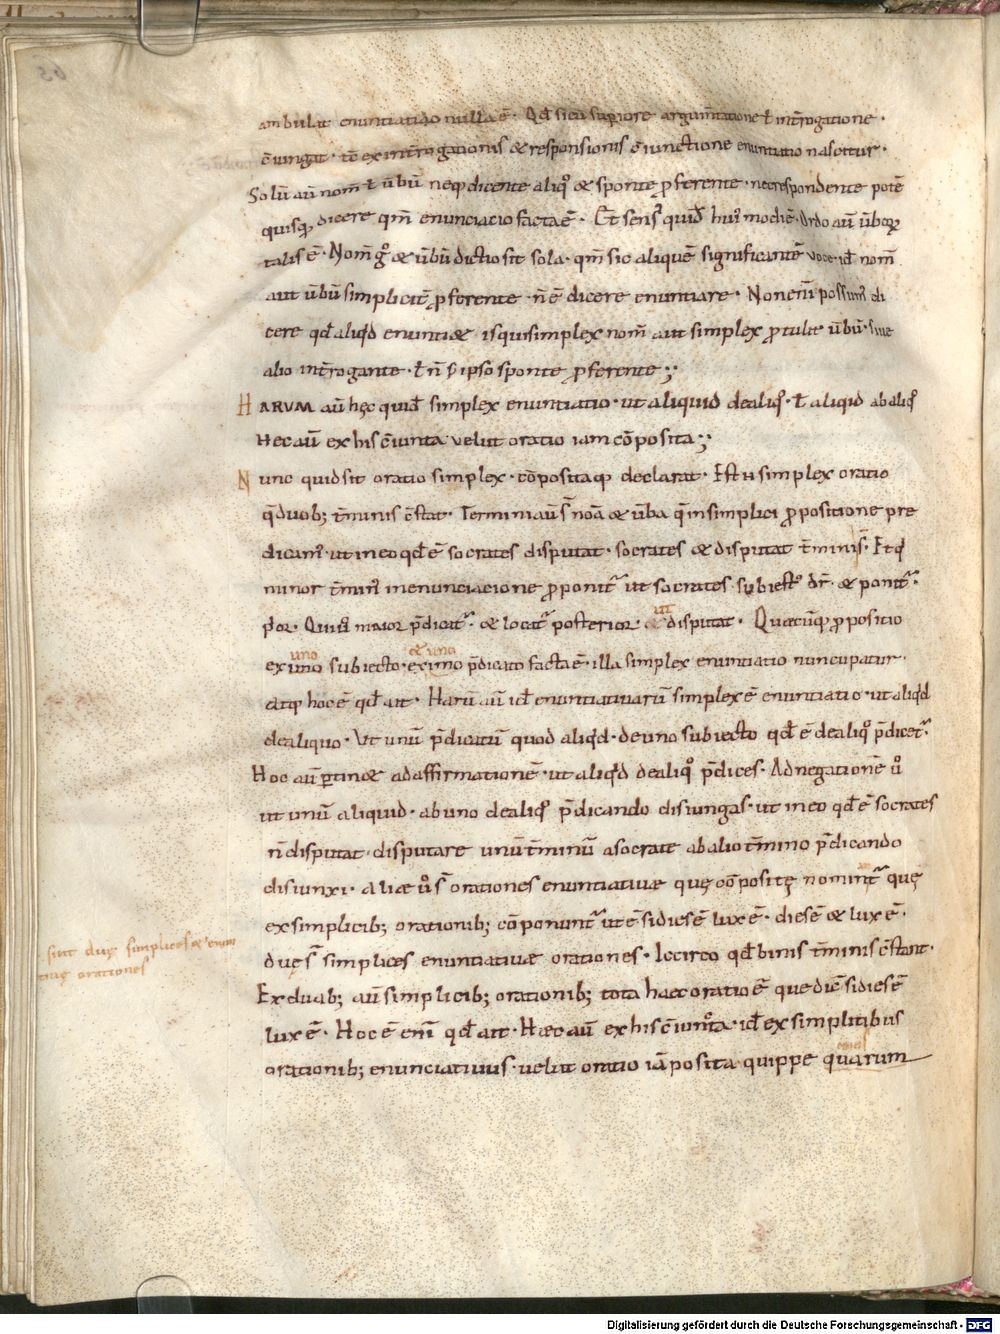 ambulat enuntiatio nulla ē· Qđ sicū supiore argum̄tatione ł int̄rogatione·
c̄iungat· tc̄ ex int̄rogationis & responsionis c̄iunctione enuntiatio nascitur·
Solū aū nom̄ ł ūbū neq; dicente aliq° & sponte ꝓferente· nec respondente potē
quisq; dicere qm̄ enunciatio facta ē· Et sens' quid̄ hui' modi ē· Ordo aū ūboꝝ
talis ē· Nom̄ ḡ & ūbū dictio sit sola· qm̄ sic aliquē significantē voce· id̄ nom̄
aut ūbū simplicit̄ ꝓferente· n̄ ē dicere enuntiare· Non eni possum' di
cere qđ aliqd enunti& is qui simplex nom̄ aut simplex ꝓtulit ūbū· sive
alio int̄rogante· ł n̄ s; ipso sponte ꝓferente;·
HARUM aū hęc quid̄ simplex enuntiatio· ut aliquid de aliq°· ł aliqid ab aliq°
Hec aū ex his c̄iuncta velut oratio iam cōposita;·
Nunc quid sit oratio simplex· cōpositaq; declarat· Est N simplex oratio
q̄ duob; t̄minis c̄stat· Termini aū s̄ noā & ūba q̄ in simplici ꝓpositione pre
dicam'· ut in eo qđ ē socrates disputat· socrates & disputat t̄mini s̄· Et qđ
minor t̄min' in enunciacione ꝓponit̄ ut socrates subiect' dr̄· & ponit̄·
p̄or· Qui ū maior p̄dicat̄· & locat̄ posterior ut disputat· Quęcūq; ꝓpositio
ex uno subiecto· & uno p̄dicato facta ē· illa simplex enuntiatio nuncupatur·
atq; hoc ē qđ ait· Harū aū id̄ enuntiativarū simplex ē enuntiatio· ut aliqd
de aliquo· Ut unū p̄dicatū quod aliqd· de uno subiecto qđ ē de aliq° p̄dicet̄·
Hoc aū ꝑtin& ad affirmationē· ut aliqd de aliq° p̄dices· Ad negationē ū
ut unū aliquid· ab uno de aliq° p̄dicando disiungas· ut in eo qđ ē socrates
n̄ disputat· disputare unū t̄minū a socrate ab alio t̄mino p̄dicando
disiunxi· Aliæ ū s̄ orationes enuntiativæ quę cōposite nominant̄ quę
ex simplicib; orationib; cōponunt̄ ut ē si dies ē lux ē· dies ē & lux ē·
duę s̄ simplices enuntiativæ orationes· Iccirco qđ binis t̄minis c̄stant·
Ex duab; aū simplicib; orationib; tota hæc oratio ē que diē si dies ē
lux ē· Hoc ē eni qđ ait· Hæc aū ex his c̄iuncta· id̄ ex simplicibus
orationib; enunciativus· velut oratio iā posita· quippe quarum
sint duę simplices & enun
tiaę orationes